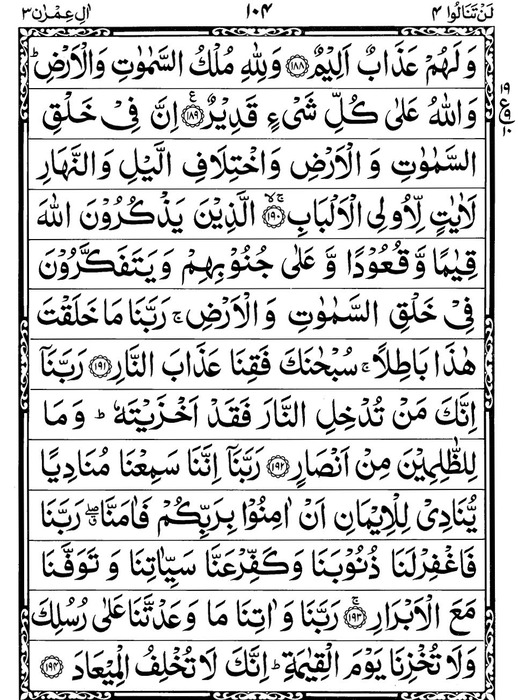 لَنْ تَنَالُوا ٤ ١٠٤ اٰلِ عِمْرٰن ٣
وَلَهُمْ عَذَابٌ اَلِيْمٌ ﴿١٨٨﴾ وَلِلّٰهِ مُلْكُ السَّمٰوٰتِ وَالْاَرْضِ ؕ
وَاللّٰهُ عَلٰى كُلِّ شَىْءٍ قَدِيْرٌ ﴿١٨٩﴾ ع اِنَّ فِىْ خَلْقِ
١٩
ع ٩
١٠
السَّمٰوٰتِ وَ الْاَرْضِ وَاخْتِلَافِ الَّيْلِ وَالنَّهَارِ
لَاٰيٰتٍ لِّاُولِى الْاَلْبَابِ ﴿١٩٠﴾ ۚۙ الَّذِيْنَ يَذْكُرُوْنَ اللّٰهَ
قِيٰمًا وَّ قُعُوْدًا وَّ عَلٰى جُنُوْبِهِمْ وَ يَتَفَكَّرُوْنَ
فِىْ خَلْقِ السَّمٰوٰتِ وَ الْاَرْضِ ۚ رَبَّنَا مَا خَلَقْتَ
هٰذَا بَاطِلًا ۚ سُبْحٰنَكَ فَقِنَا عَذَابَ النَّارِ ﴿١٩١﴾ رَبَّنَاۤ
اِنَّكَ مَنْ تُدْخِلِ النَّارَ فَقَدْ اَخْزَيْتَهٗ ؕ وَ مَا
لِلظّٰلِمِيْنَ مِنْ اَنْصَارٍ ﴿١٩٢﴾ رَبَّنَاۤ اِنَّنَا سَمِعْنَا مُنَادِيًا
يُّنَادِىْ لِلْاِيْمَانِ اَنْ اٰمِنُوْا بِرَبِّكُمْ فَاٰمَنَّا ۖۗ رَبَّنَا
فَاغْفِرْ لَنَا ذُنُوْبَنَا وَكَفِّرْ عَنَّا سَيِّاٰتِنَا وَ تَوَفَّنَا
مَعَ الْاَبْرَارِ ﴿١٩٣﴾ ۚ رَبَّنَا وَ اٰتِنَا مَا وَعَدْتَّنَا عَلٰى رُسُلِكَ
وَلَا تُخْزِنَا يَوْمَ الْقِيٰمَةِ ؕ اِنَّكَ لَا تُخْلِفُ الْمِيْعَادَ ﴿١٩٤﴾